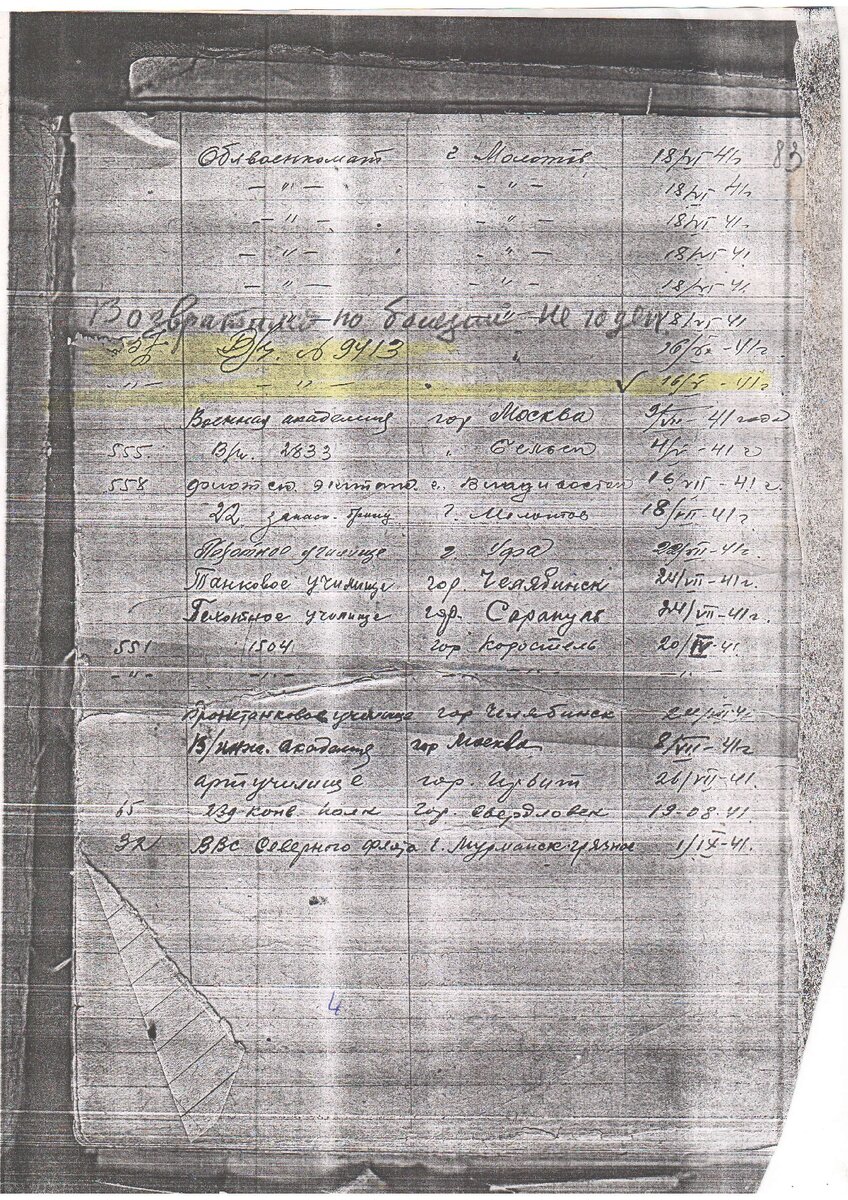 Облвоенкомат г Молотов 18/VI 41г 83
— " — — " — 18/VI 41г
— " — — " — 18/VI 41.
— " — — " — 18/VI 41.
— " — — " — 18/VI 41.
Возвратили по болезни не годен 18/VI 41
В/ч. N 9413 " 16/ -41г.
—"— — " — " ✓ 16/ -41г
Военная академия гор Москва 9/VII-41 года
555. В/ч. 2833 " 4/ -41г
558 г. Владивосток 16/VII-41г.
22 запасн. г. 18/VII-41г
Пехотное училище г. Уфа 22/VII-41г.
Танковое училище гор. Челябинск 24/VII-41г.
Пехотное училище гор. Сарапуль 24/VII-41г.
551 1504 гор Коростель 20/IV-41.
—"— —"— —"— —"—
Бронетанковое училище гор Челябинск
В/инж. академия гор Москва 8/VII-41г
артучилище гор. Ирбит 26/VII-41.
65 239 конв. полк гор. Свердловск 19-08-41
ВВС Северного флота г. Мурманск грязное 1/IX-41.
4